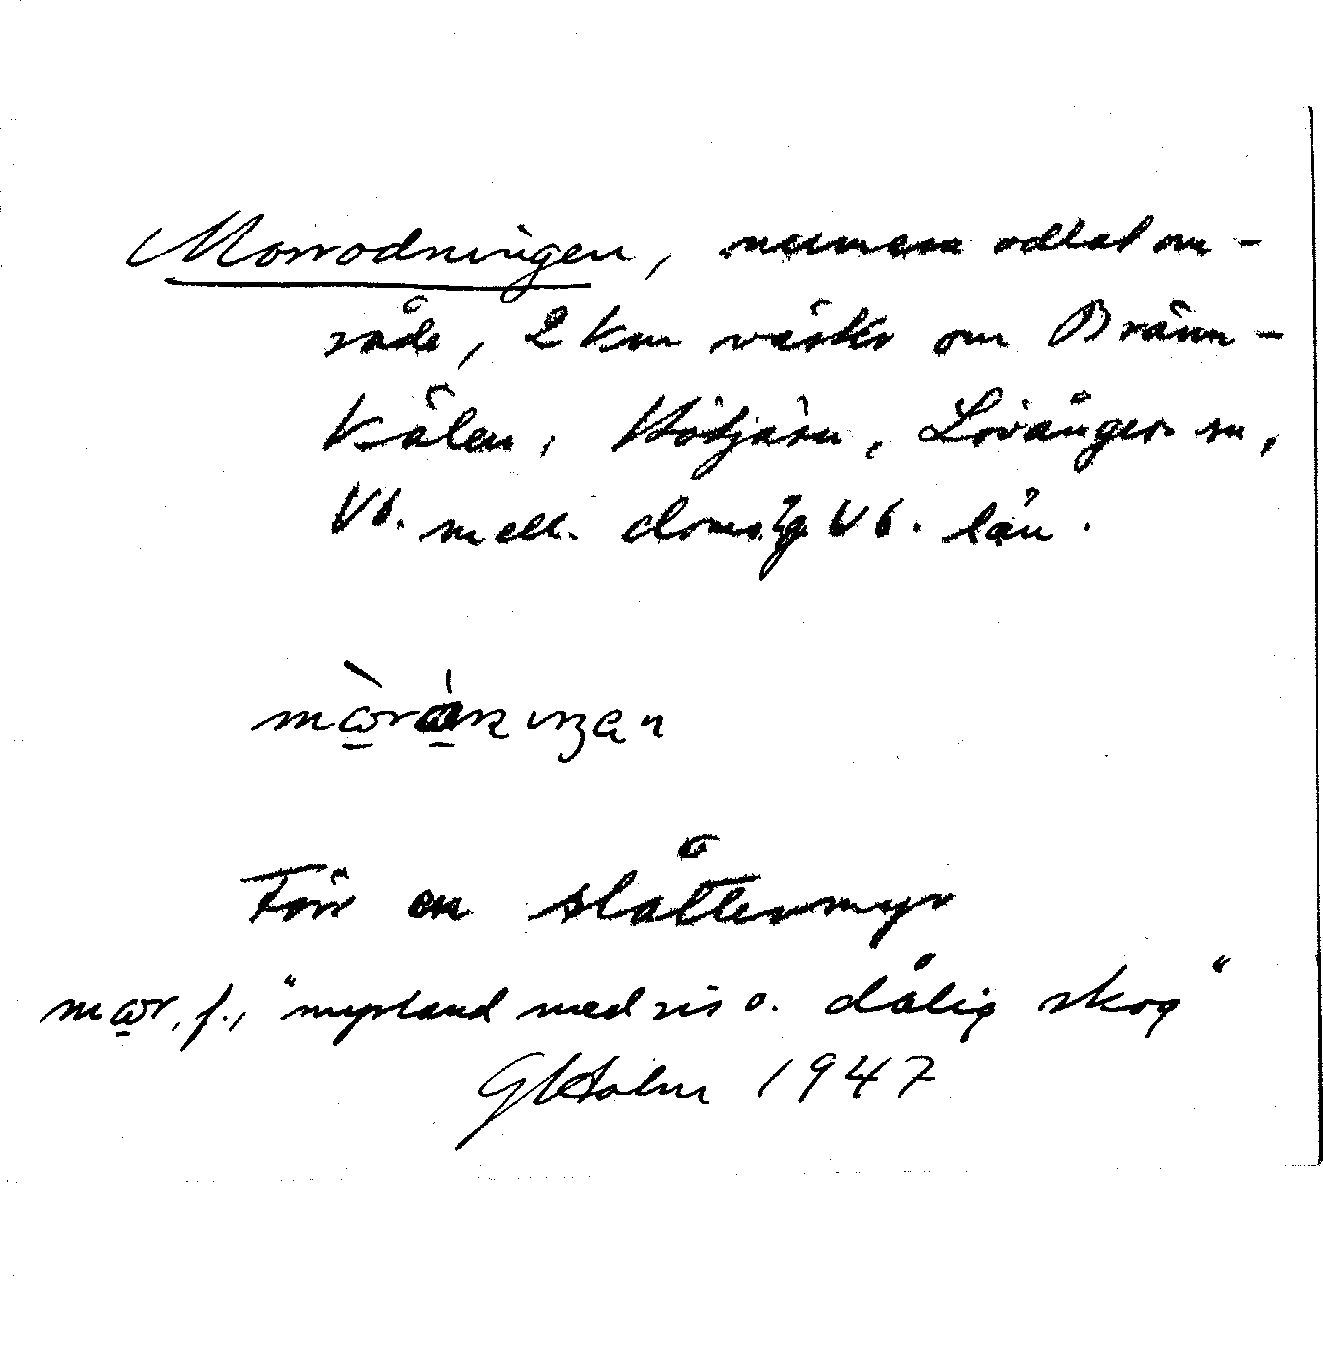 Morrodningen, numera odlat om-
råde, 2 km väster om Bränn-
kälen, Hötjärn, Lövångers sn,
Vb. mell. doms2g Vb. län.
Förr en slåttermyr
mɷr, f., "myrland med ris o. dålig skog"
G Holm 1947